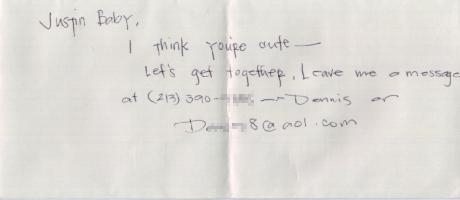 Justin Baby,
I think you're cute —
Let's get together. Leave me a message
at (213) 390- — Dennis or
8@aol.com